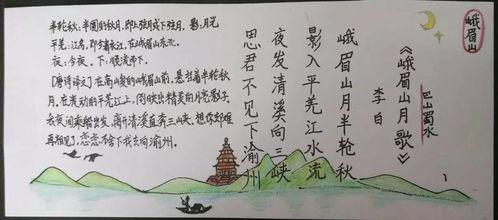 峨眉山
巴山蜀水
《峨眉山月歌》
李白
峨眉山月半轮秋
影入平羌江水流
夜发清溪向三峡
思君不见下渝州
半轮秋：半圆的秋月，即上弦月或下弦月。影：月光
平羌：江名，即青衣江，在峨眉山东北。
夜：今夜。下：顺流而下。
[唐诗译文]在高峻的峨眉山前，悬挂着半轮秋
月。在流动的平羌江上，倒映出精美的月亮影子。
夜间乘船出发，离开清溪直奔三峡。想你却难
再相见，恋恋不舍下去向渝州。